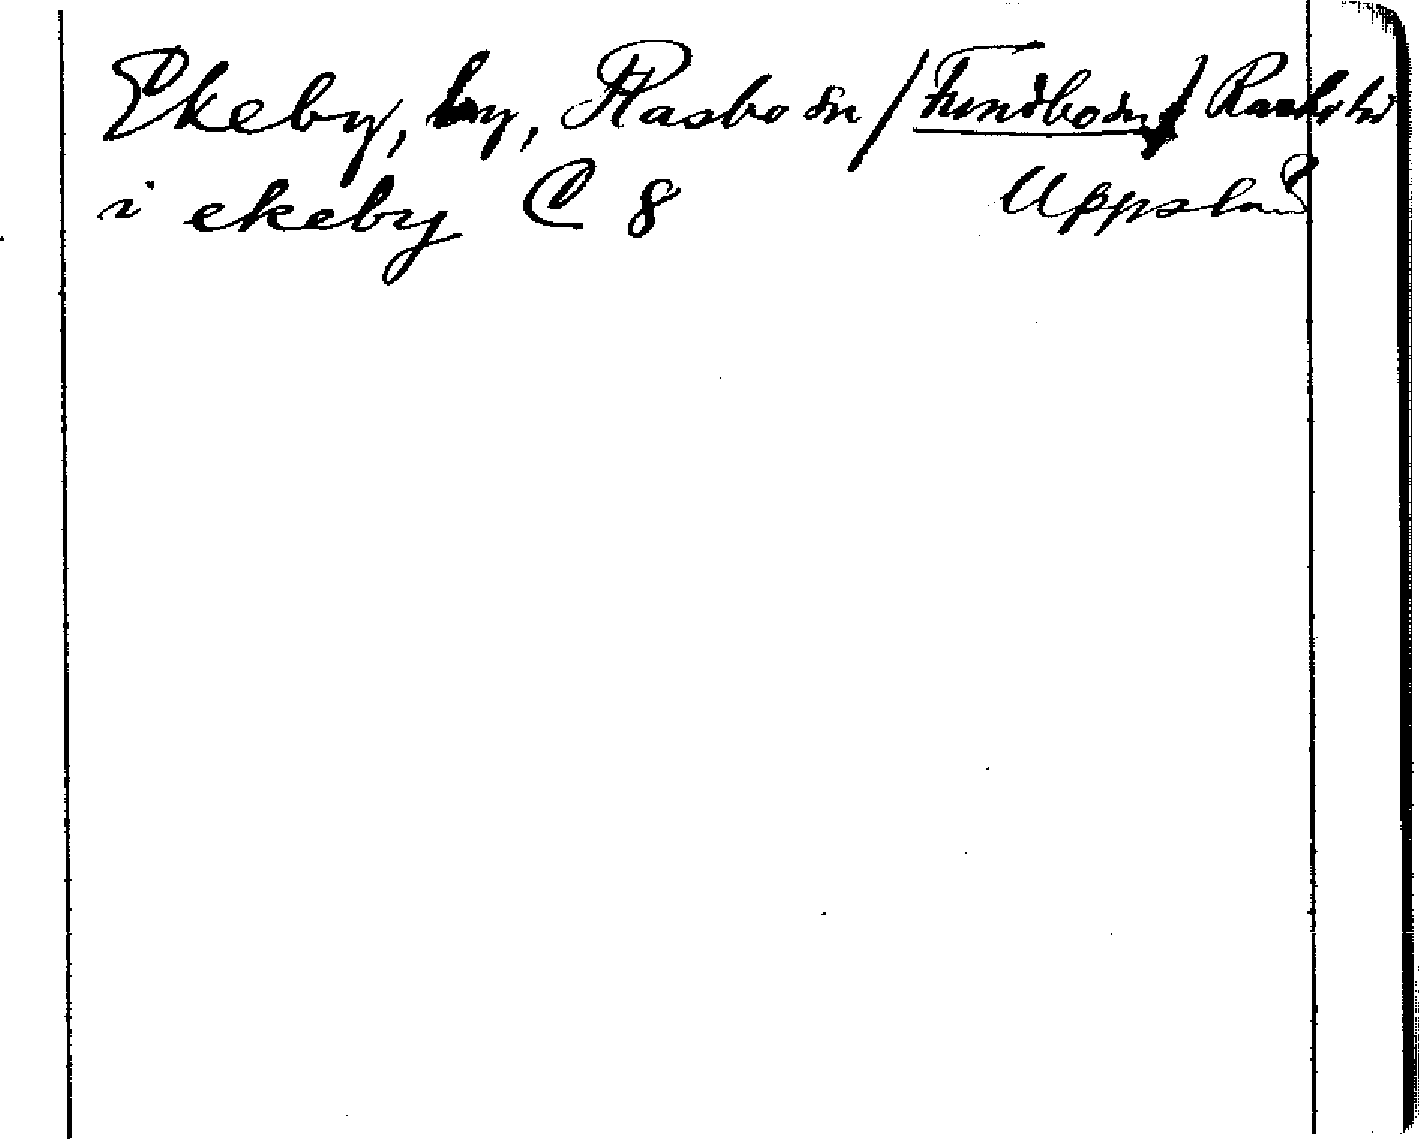 Ekeby, by, Rasbo sn /Funbo sn/ Rasbo hd
i ekeby C 8 Uppland